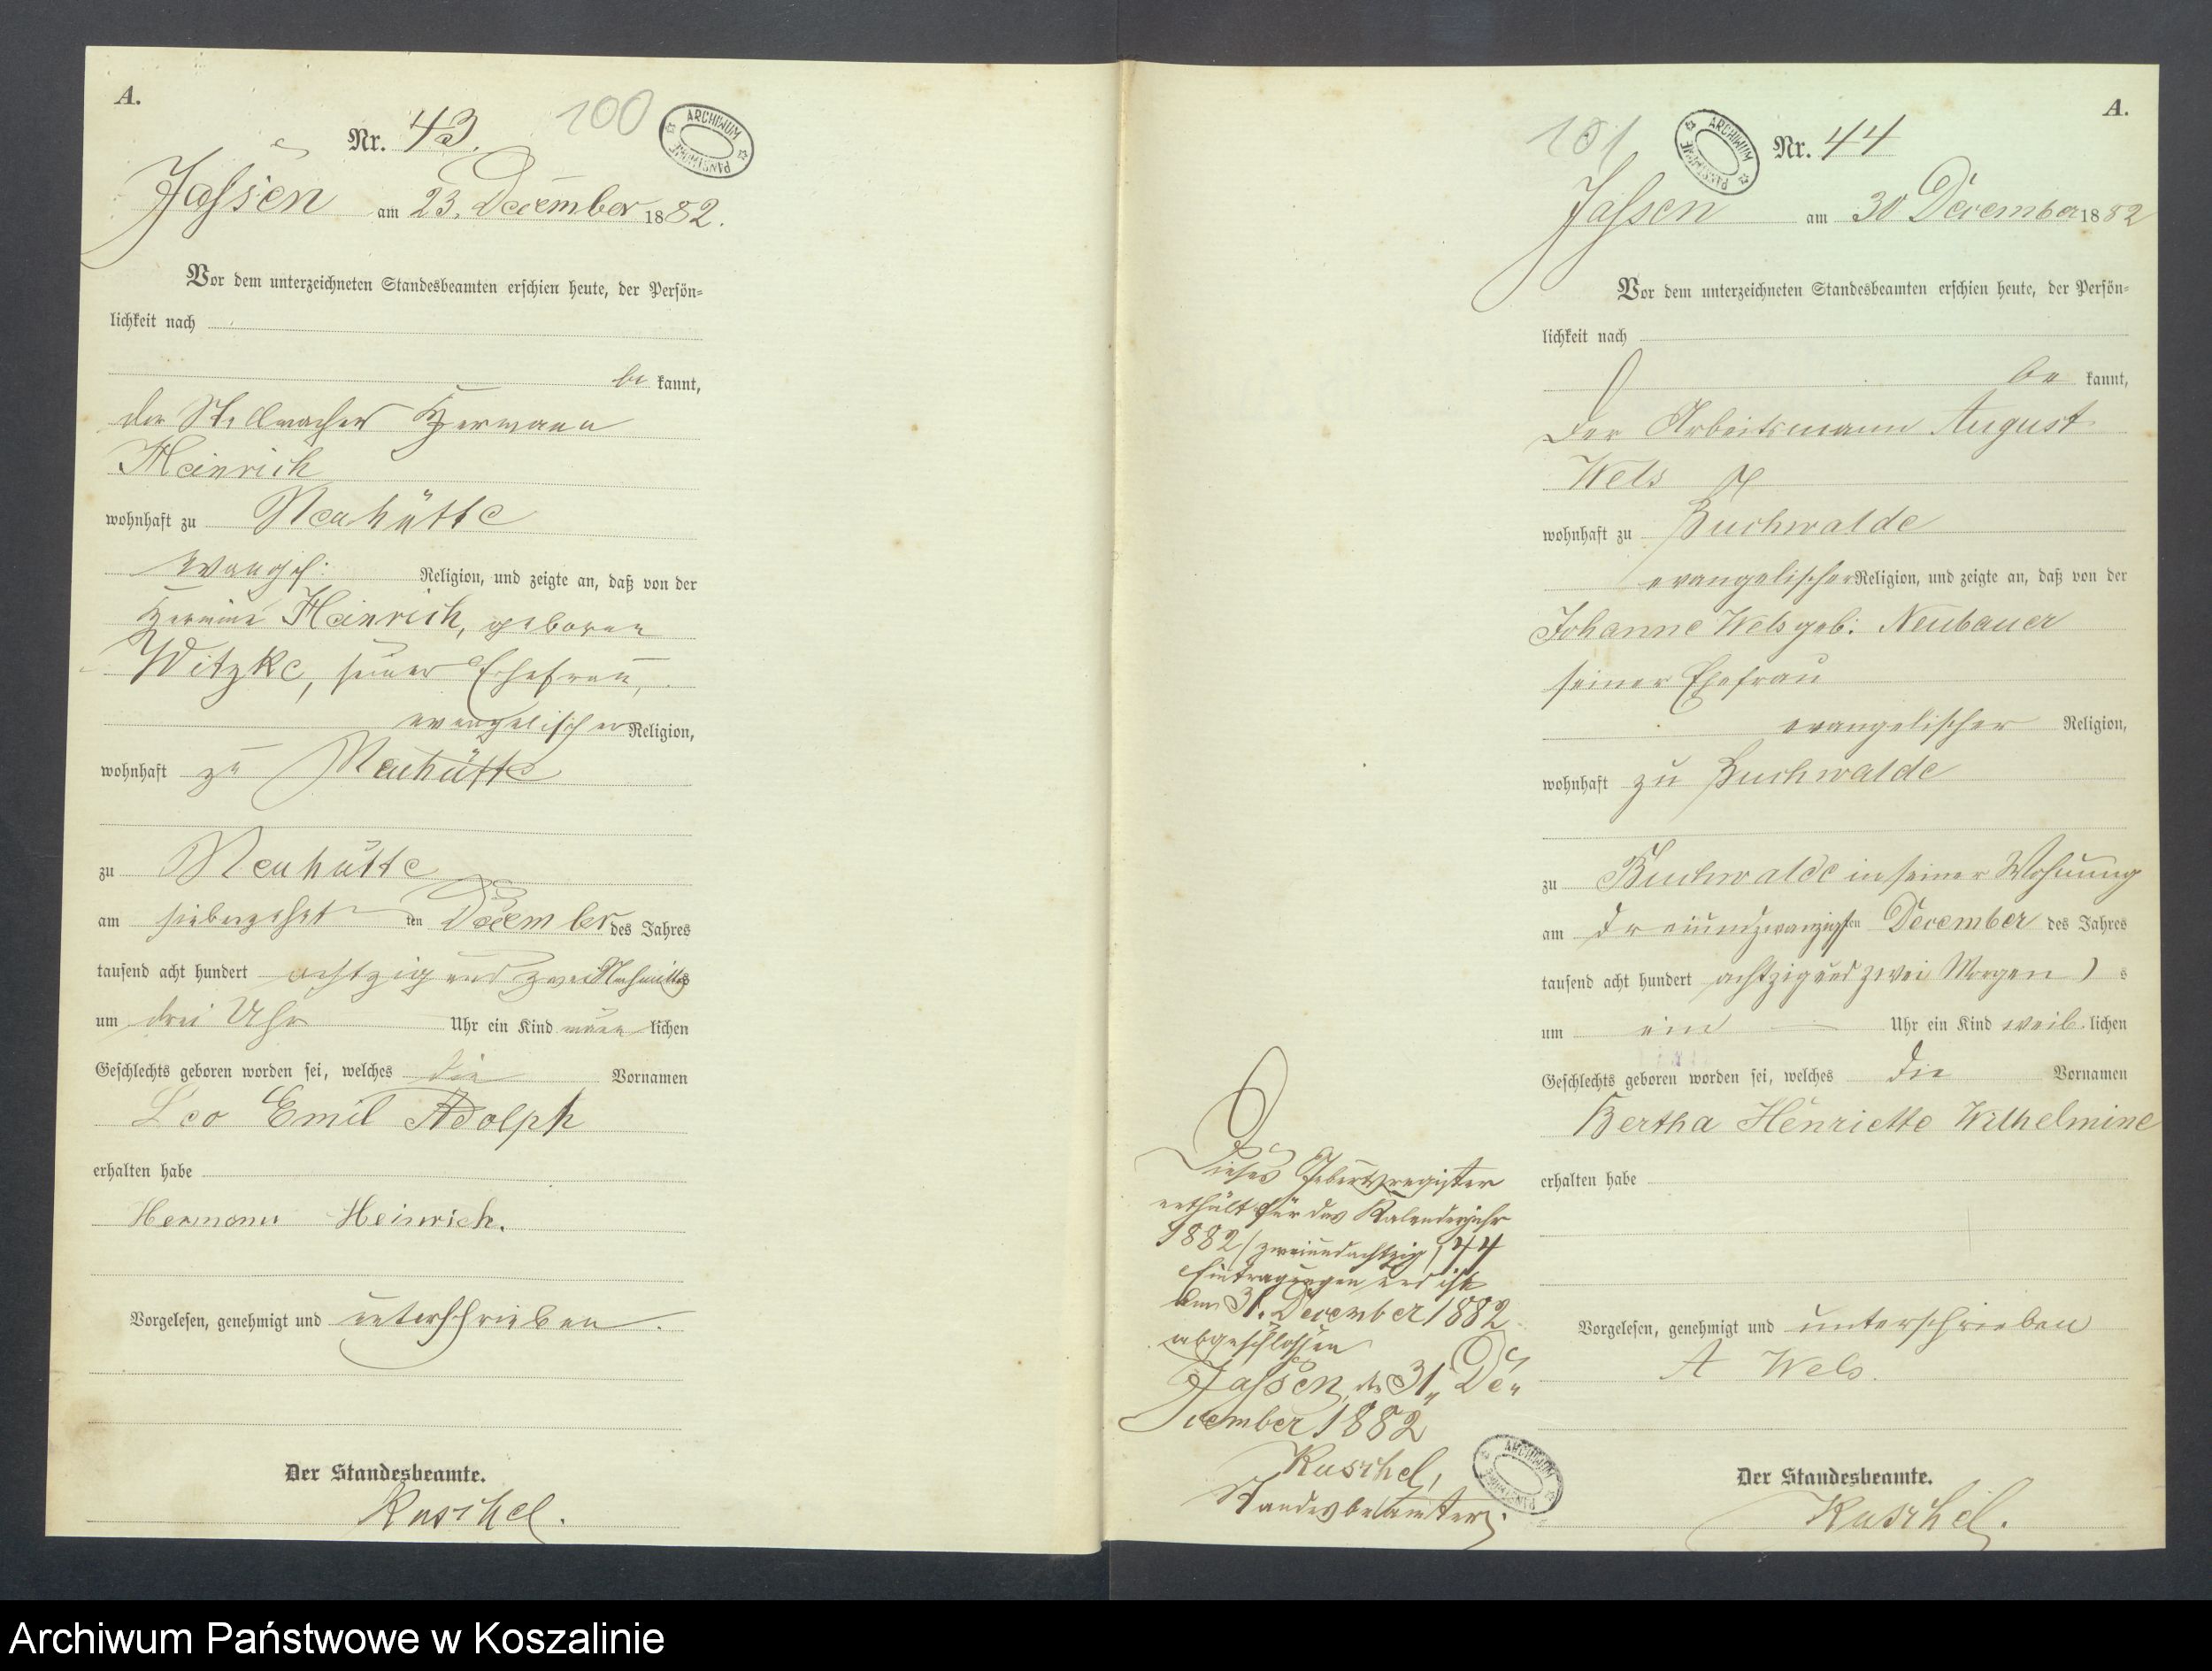 A.
Nr. 43.
100
ARCHIWUM PAŃSTWOWE
Jassen am 23. December 1882.
Vor dem unterzeichneten Standesbeamten erschien heute, der Persön-
lichkeit nach
be kannt,
der Stellmacher Hermann
Heinrich
wohnhaft zu Neuhütte
evangel: Religion, und zeigte an, daß von der
Hermine Heinrich, geboren
Witzke, seiner Ehefrau,
evangelischer Religion,
wohnhaft zu Neuhütte
zu Neuhütte
am siebenzehnten December des Jahres
tausend acht hundert achtzig und zwei Nachmittags
um drei Uhr Uhr ein Kind männlichen
Geschlechts geboren worden sei, welches die Vornamen
Leo Emil Adolph
erhalten habe
Hermann Heinrich.
Vorgelesen, genehmigt und unterschrieben.
Der Standesbeamte.
Kuschel.
A.
101
ARCHIWUM PAŃSTWOWE
Nr. 44
Jassen am 30 December 1882
Vor dem unterzeichneten Standesbeamten erschien heute, der Persön-
lichkeit nach
be kannt,
der Arbeitsmann August
Wels
wohnhaft zu Buchwalde
evangelischer Religion, und zeigte an, daß von der
Johanne Wels geb: Neubauer
seiner Ehefrau
evangelischer Religion,
wohnhaft zu Buchwalde
zu Buchwalde in seiner Wohnung
am dreiundzwanzigsten December des Jahres
tausend acht hundert achtzig und zwei Morgens
um ein Uhr ein Kind weiblichen
Geschlechts geboren worden sei, welches die Vornamen
Bertha Henriette Wilhelmine
erhalten habe
Vorgelesen, genehmigt und unterschrieben
A Wels.
Der Standesbeamte.
Kuschel.
Dieses Geburtsregister
enthält für das Kalenderjahr
1882 (zweiundachtzig) 44
Eintragungen und ist
am 31. December 1882
abgeschlossen
Jassen, den 31ten De-
cember 1882
Kuschel,
Standesbeamter.
ARCHIWUM PAŃSTWOWE
Archiwum Państwowe w Koszalinie